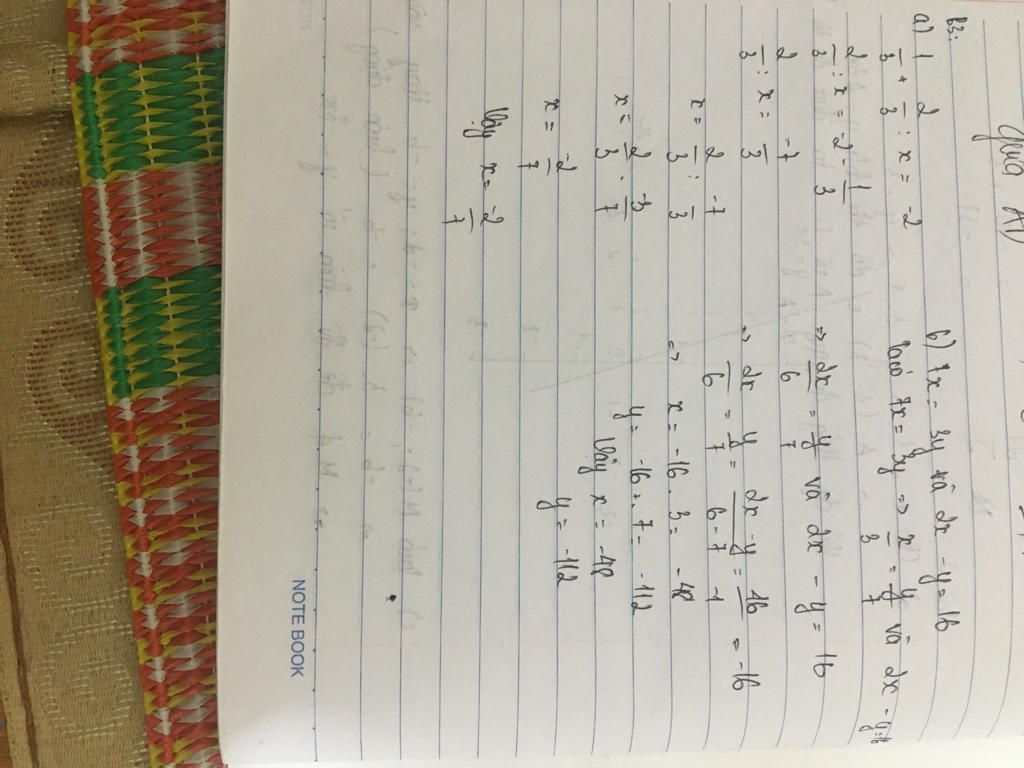 B3:
a) 1/3 + 2/3 : x = -2
2/3 : x = -2 - 1/3
2/3 : x = -7/3
x = 2/3 : -7/3
x = 2/3 . -3/7
x = -2/7
Vậy x = -2/7
b) 7x = 3y và 2x - y = 16
Ta có 7x = 3y => x/3 = y/7 và 2x - y = 16
=> 2x/6 = y/7 và 2x - y = 16
=> 2x/6 = y/7 = 2x - y/6 - 7 = 16/-1 = -16
=> x = -16 . 3 = -48
y = -16 . 7 = -112
Vậy x = -48
y = -112
NOTE BOOK